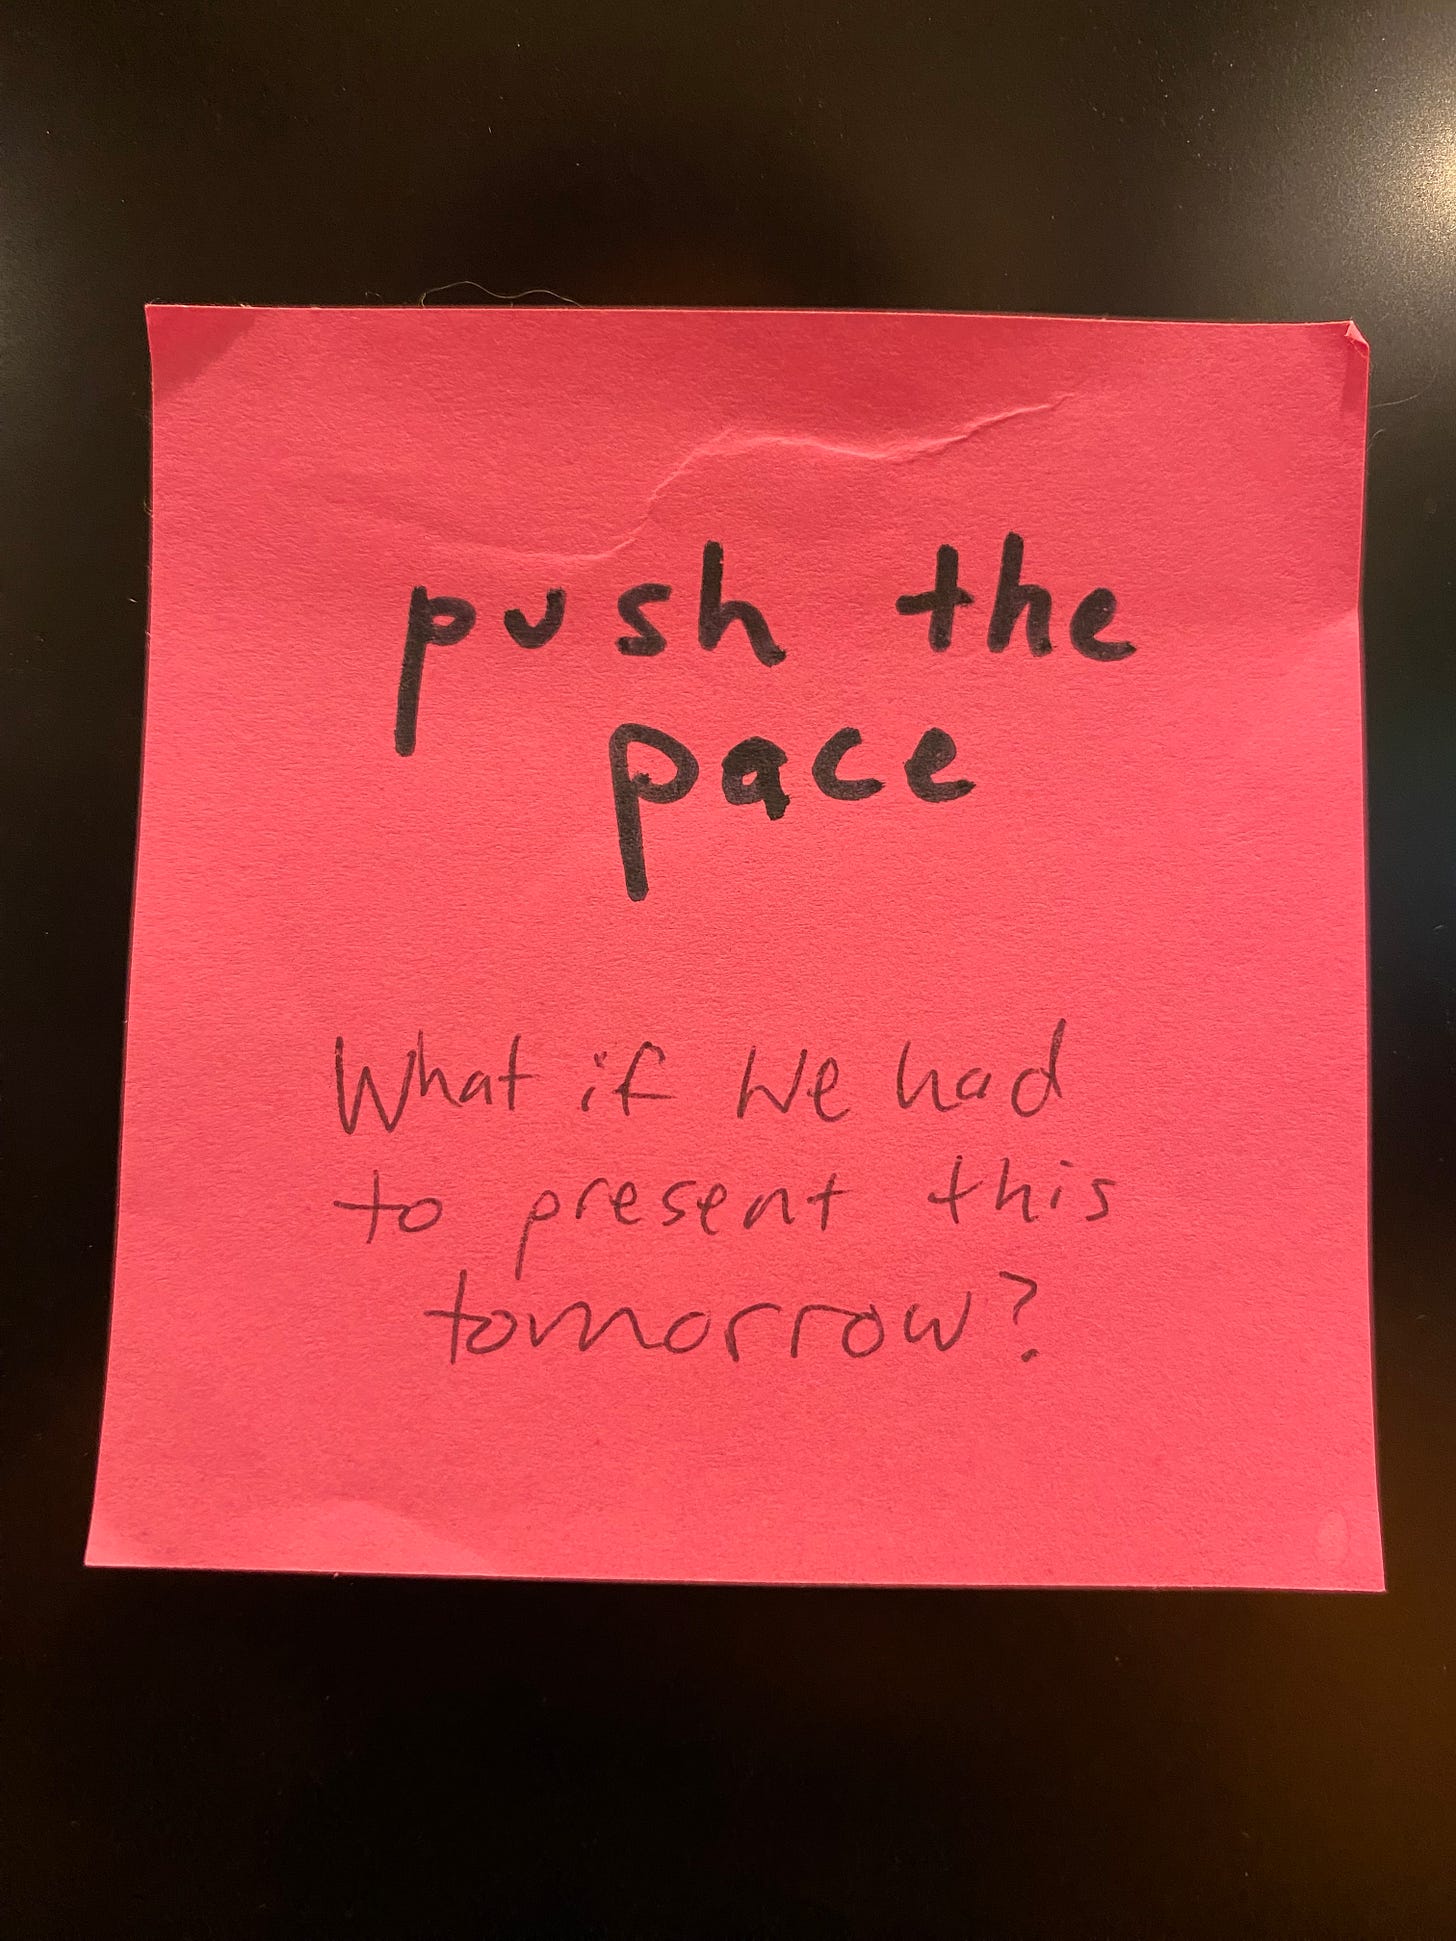 push the
pace
What if we had
to present this
tomorrow?